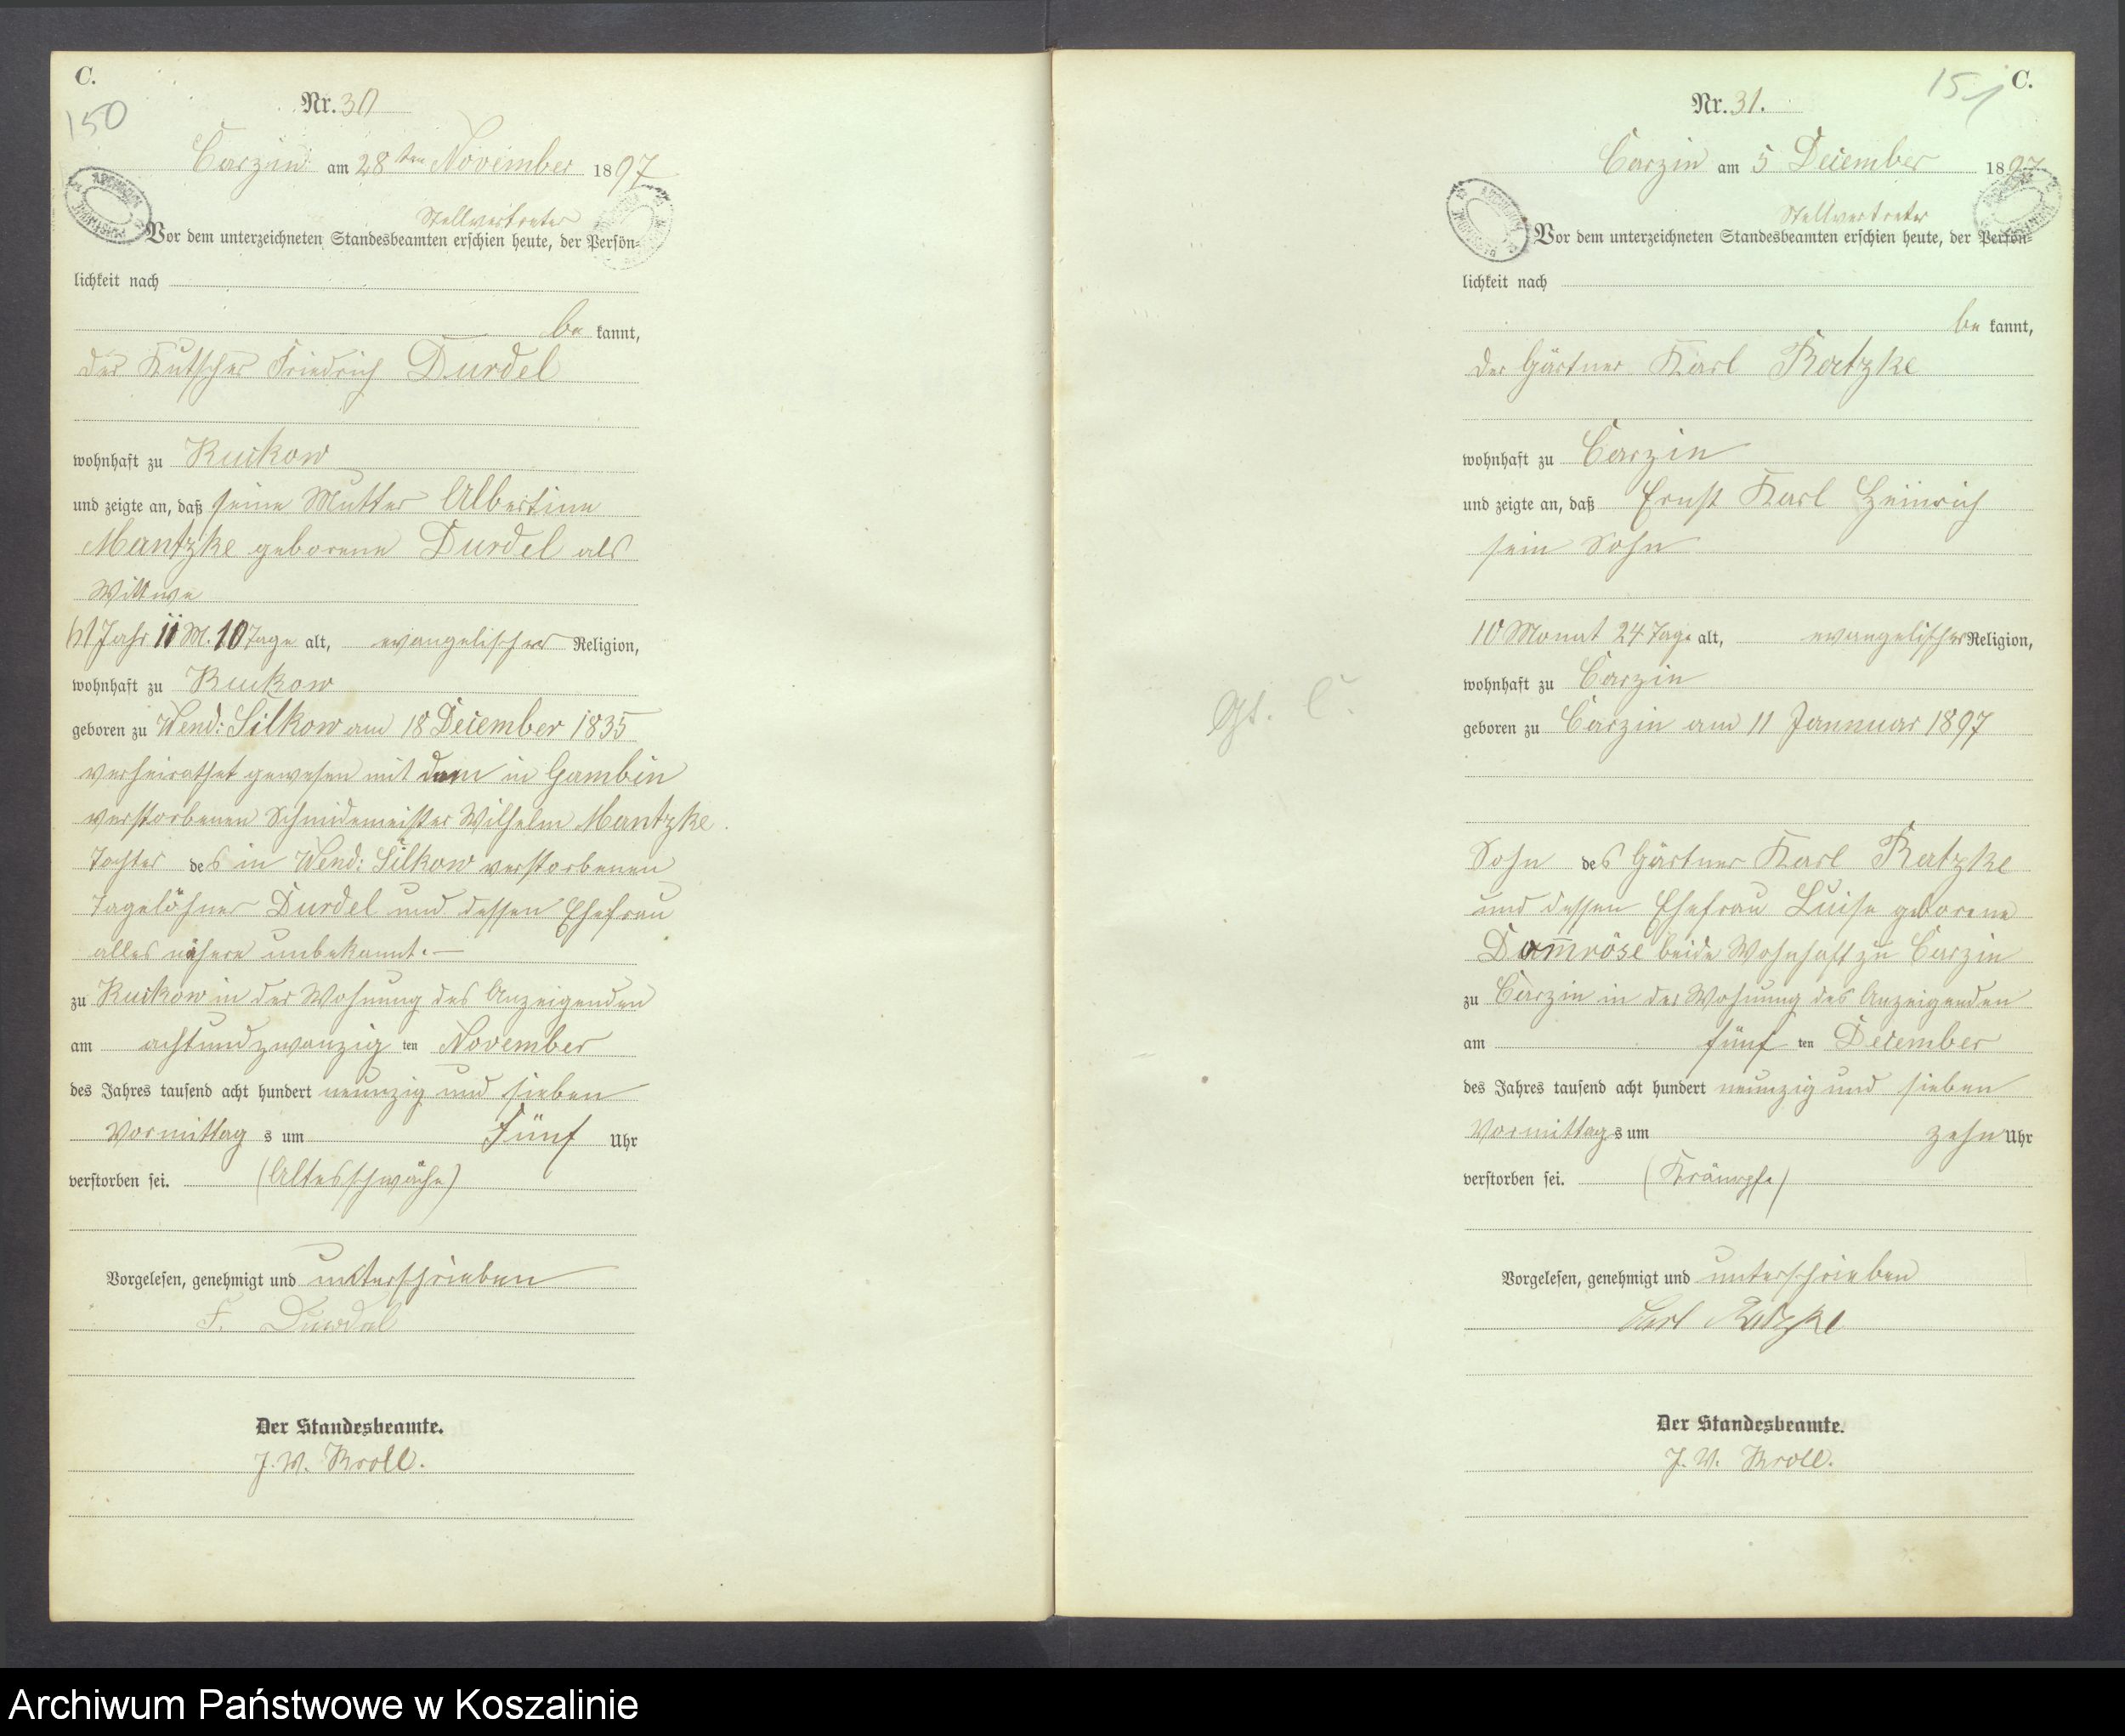 C.
150
Nr. 30
Carzin am 28ten November 1897
Stellvertreter
Vor dem unterzeichneten Standesbeamten erschien heute, der Persön-
lichkeit nach
be kannt,
der Kutscher Friedrich Durdel
wohnhaft zu Ruikow
und zeigte an, daß seine Mutter Albertine
Mantzke geborene Durdel als
Wittwe
61 Jahr 11 M. 10 Tage alt, evangelischer Religion,
wohnhaft zu Ruikow
geboren zu Wend: Silkow am 18 December 1835
verheirathet gewesen mit dem in Gambin
verstorbenen Schmidemeister Wilhelm Mantzke.
Tochter des in Wend: Silkow verstorbenen
Tagelöhner Durdel und dessen Ehefrau
alles nähere unbekannt.—
zu Ruikow in der Wohnung des Anzeigenden
am achtundzwanzig ten November
des Jahres tausend acht hundert neunzig und sieben
Vormittag s um Fünf Uhr
verstorben sei. (Altesschwäche)
Vorgelesen, genehmigt und unterschrieben
F. Durdel
Der Standesbeamte.
J. V. Kroll.
C.
151
Nr. 31.
Carzin am 5 December 1897
Stellvertreter
Vor dem unterzeichneten Standesbeamten erschien heute, der Persön-
lichkeit nach
be kannt,
der Gärtner Karl Ratzke
wohnhaft zu Carzin
und zeigte an, daß Ernst Karl Heinrich
sein Sohn
10 Monat 24 Tage alt, evangelischer Religion,
wohnhaft zu Carzin
geboren zu Carzin am 11 Jannuar 1897
Sohn des Gärtner Karl Ratzke
und dessen Ehefrau Luise geborene
Dam̅röse beide Wohnhaft zu Carzin
zu Carzin in der Wohnung des Anzeigenden
am fünf ten December
des Jahres tausend acht hundert neunzig und sieben
Vormittag s um zehn Uhr
verstorben sei. (Krämpfe)
Vorgelesen, genehmigt und unterschrieben
Carl Ratzke
Der Standesbeamte.
J. V. Kroll.
Archiwum Państwowe w Koszalinie